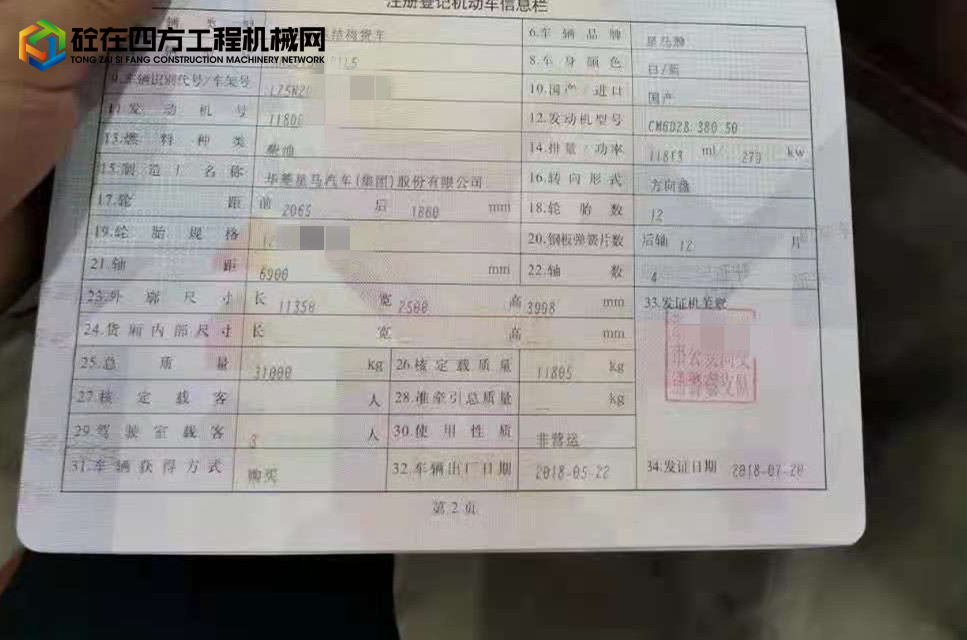 砼在四方工程机械网
TONG ZAI SI FANG CONSTRUCTION MACHINERY NETWORK
注册登记机动车信息栏
辆 类 型 结构货车 6.车辆品牌 星马牌
8.车身颜色 白/蓝
9.车辆识别代号/车架号 LZ5N2 10.国产/进口 国产
11.发动机号 11806 12.发动机型号 CM6D28.380 50
13.燃料种类 柴油 14.排量/功率 11813 ml/ 279 kw
15.制造厂名称 华菱星马汽车(集团)股份有限公司 16.转向形式 方向盘
17.轮距 前 2065 后 1860 mm 18.轮胎数 12
19.轮胎规格 12 20.钢板弹簧片数 后轴 12 片
21.轴距 6900 mm 22.轴数 4
23.外廓尺寸 长 11350 宽 2500 高 3998 mm 33.发证机关章
24.货厢内部尺寸 长 宽 高 mm
25.总质量 31000 kg 26.核定载质量 11805 kg
27.核定载客 人 28.准牵引总质量 kg
29.驾驶室载客 3 人 30.使用性质 非营运
31.车辆获得方式 购买 32.车辆出厂日期 2018-05-22 34.发证日期 2018-07-20
第 2 页